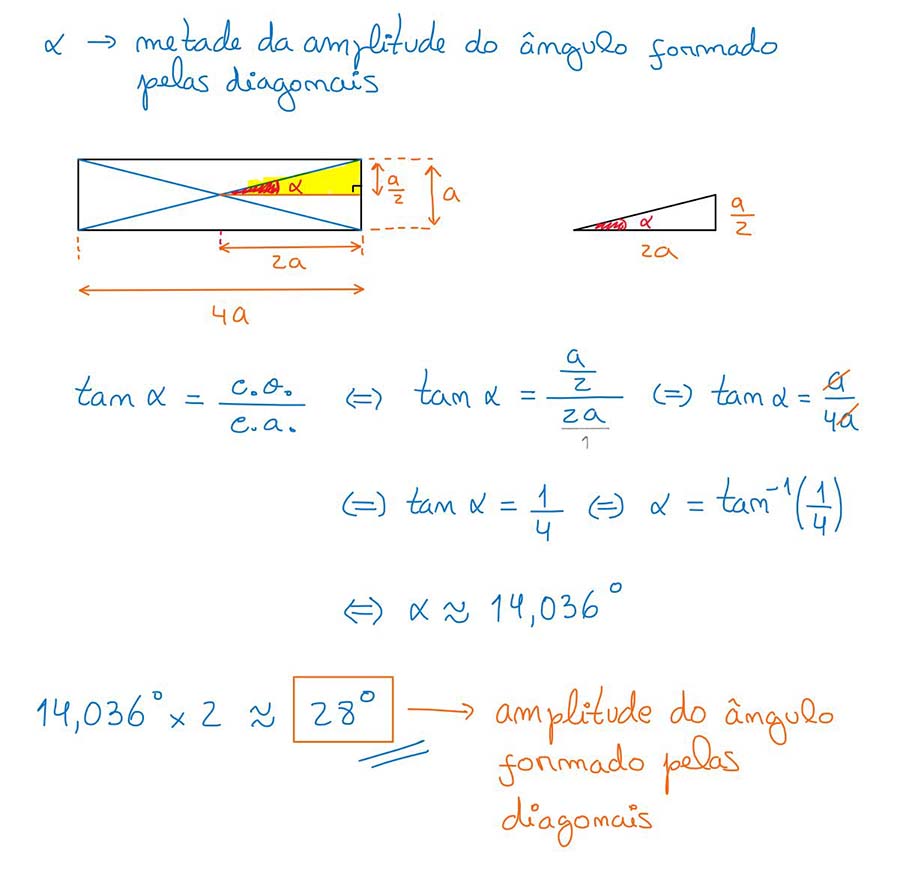 α → metade da amplitude do ângulo formado
pelas diagonais
α
a/2
a
2a
4a
α
a/2
2a
tan α = c.o./c.a. ⇔ tan α = (a/2)/(2a/1) (=) tan α = a/4a
(=) tan α = 1/4 ⇔ α = tan⁻¹(1/4)
⇔ α ≈ 14,036°
14,036° × 2 ≈ 28° → amplitude do ângulo
formado pelas
diagonais